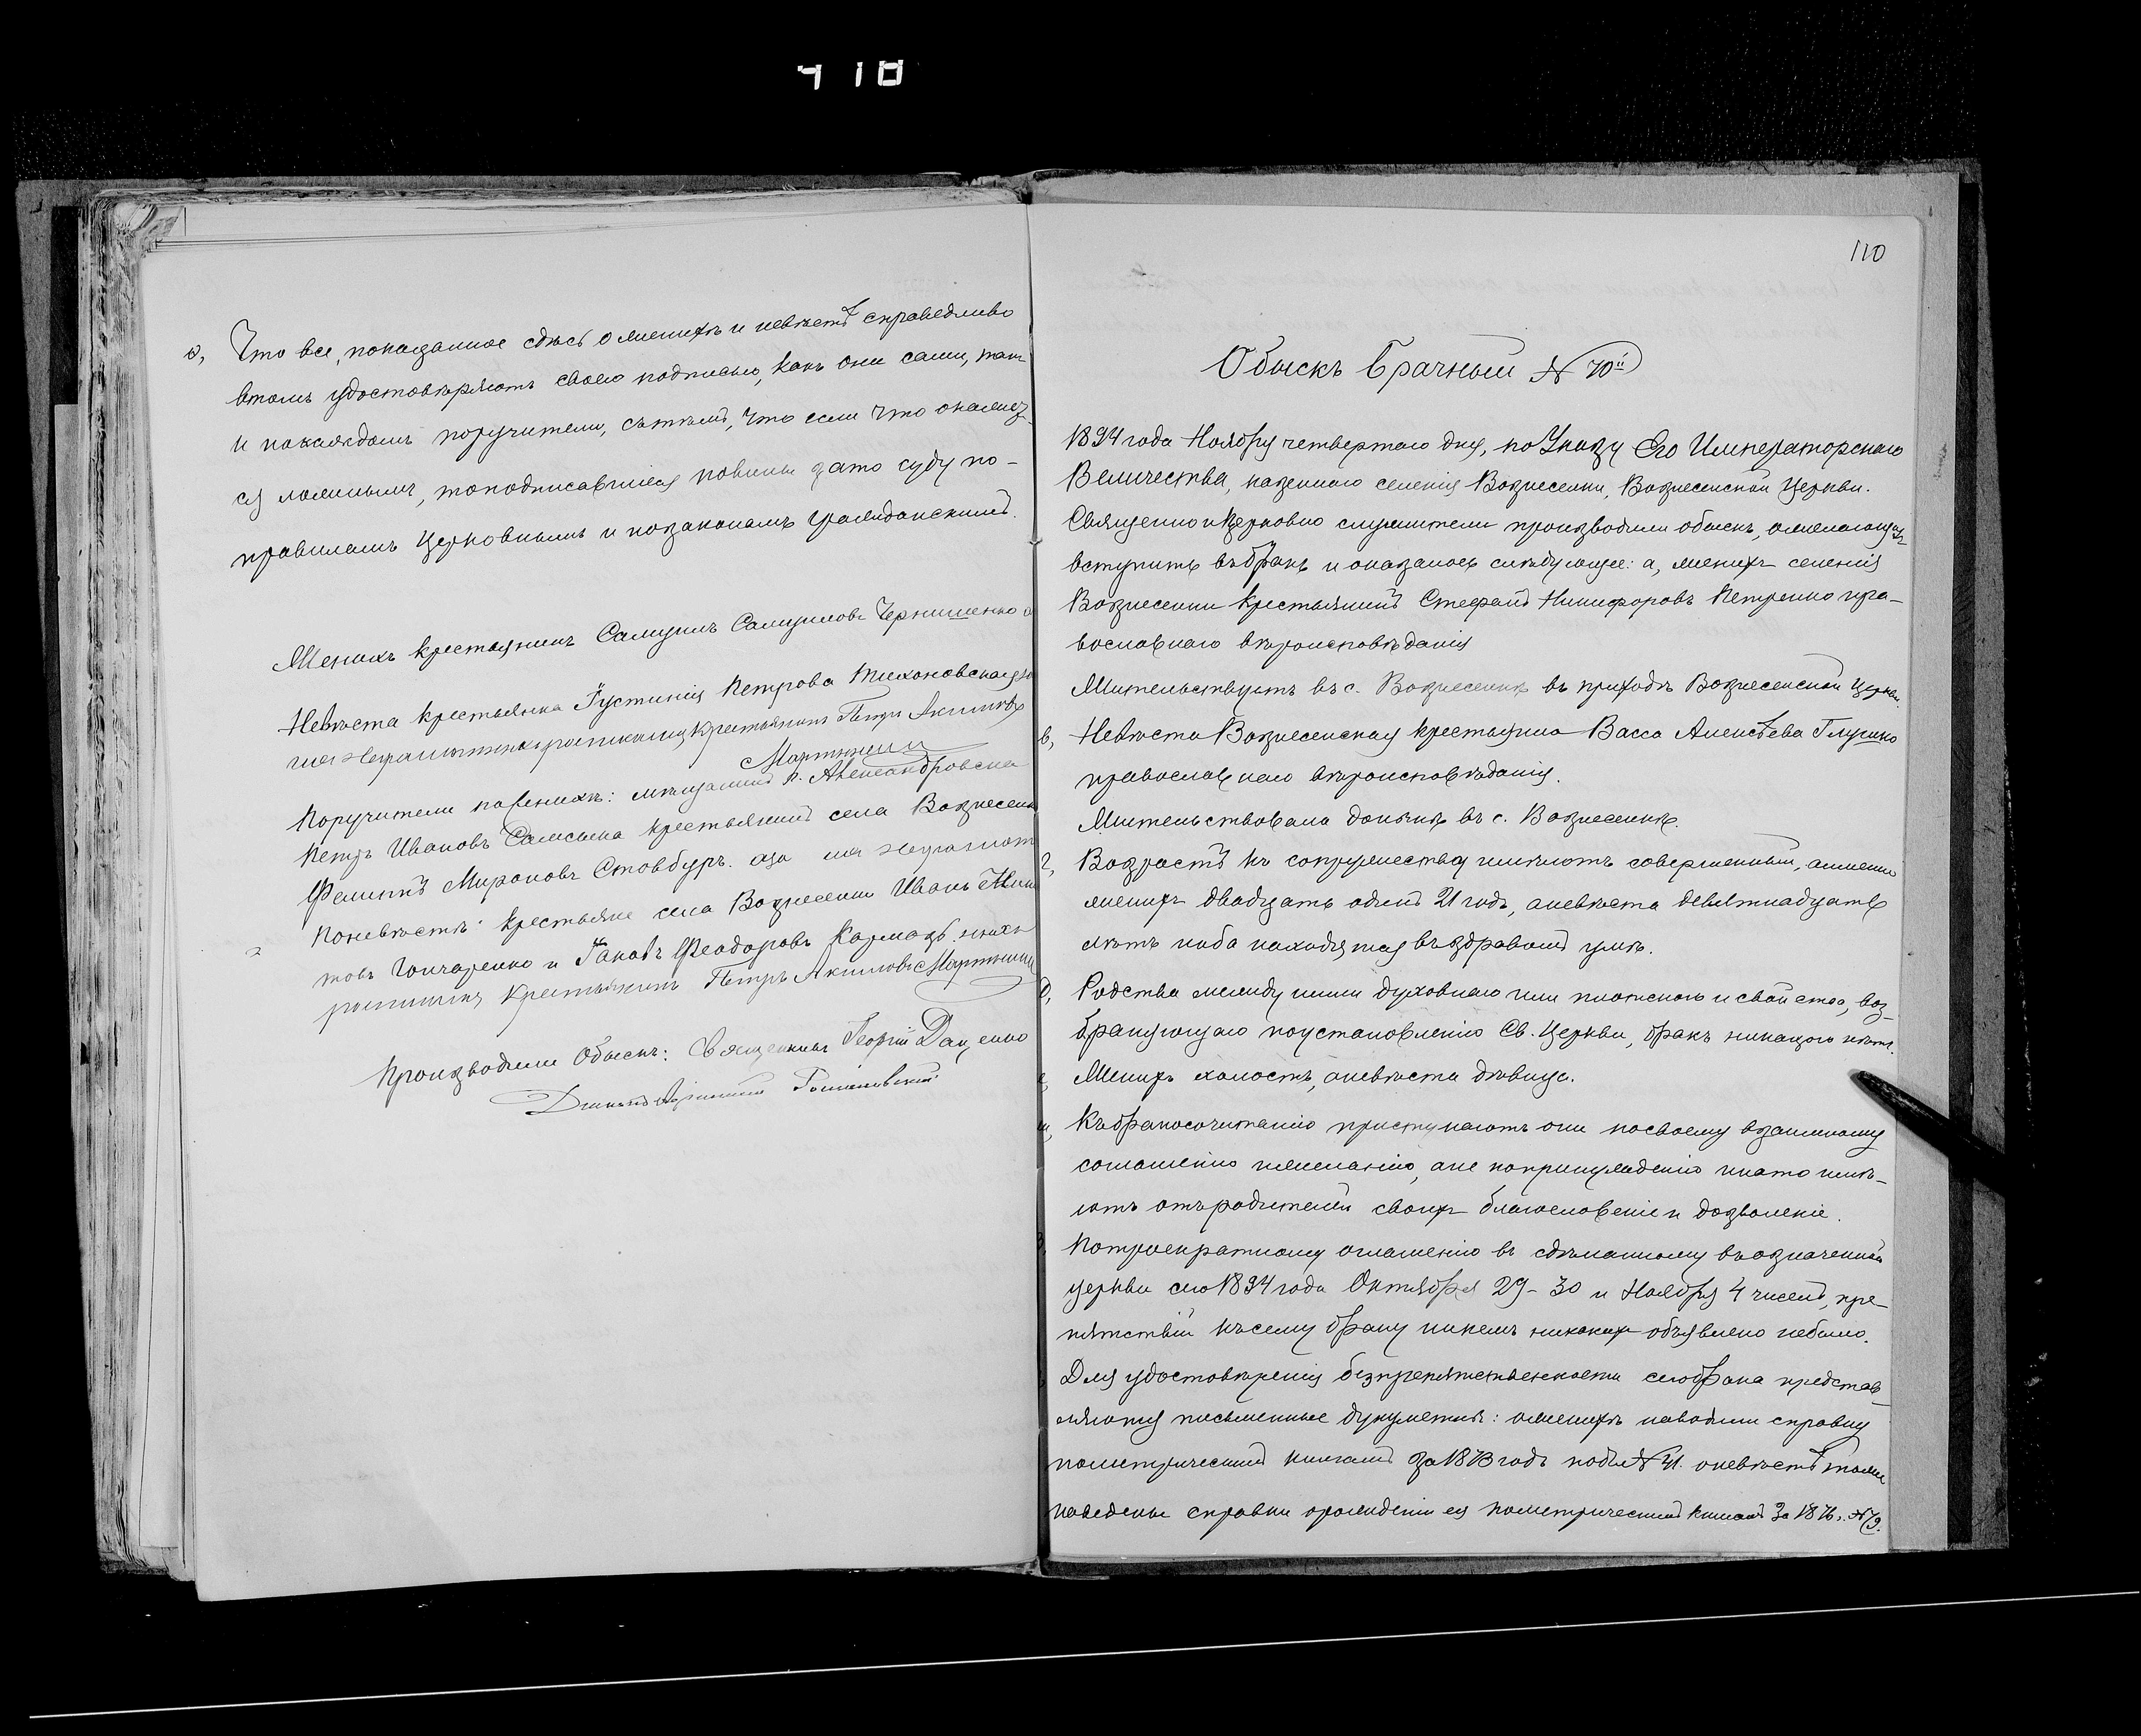 418
ѳ, Что все, показанное сдѣсь о женихѣ и невѣстѣ справедливо
втомъ удостовѣряютъ своею подписью, какъ они сами, такъ
и покаждомъ поручители, сътѣмъ, что если что окажет-
ся ложнымъ, топодписавшіеся повины зато суду по-
правиламъ церковнымъ и позаконамъ гражданскимъ.
Женихъ крестьянинъ Самуилъ Самуиловъ Чернышенко а
Невѣста крестьянка Іустинія Петрова Тихоновская за
крестьянинъ Петръ Акимовъ
Мартынец
Поручители поженихѣ: мѣщанинъ г. Александровска
Петръ Ивановъ Самсыка крестьянинъ села Вознесенк
Филиппъ Мироновъ Стовбуръ. аза неграмот
Поневѣстѣ: крестьяне села Вознесенки Иванъ
товъ Гончаренко и Іаковъ Феодоровъ Кармазь.
крестьянинъ Петръ Акимовъ Мартынец
Производили Обыскъ: Священникъ Георгій Даценко
110
Обыскъ брачный № 70й
1894 года Ноября четвертаго дня, по Указу Его Императорскаго
Величества, казеннаго селенія Вознесенки, Вознесенской Церкви.
Священно и церковно служители производили обыскъ, ожелающихъ
вступить въбракъ и оказалось слѣдующее: а, женихъ селенія
Вознесенки крестьянинъ Стефанъ Никифоровъ Петренко пра-
вославнаго вѣроисповѣданія
Жительствуетъ въ с. Вознесенкѣ въ приходѣ Вознесенской Церкви.
в, Невѣста Вознесенская крестьянка Васса Алексѣева Глушко
православнаго вѣроисповѣданія.
Жительствовала донынѣ въ с. Вознесенкѣ.
г, Возрастъ къ супружеству имѣютъ совершенный, аименно
женихъ двадцать одинъ 21 годъ, аневѣста девятнадцать
лѣтъ иоба находятся въздравомъ умѣ.
д, Родства между ними духовнаго или плотскаго и свойства, воз-
бранующаго поустановленію Св. Церкви, бракъ никакого нѣтъ.
е, Женихъ холостъ, аневѣста дѣвица.
ж, Къбракосочитанію приступаютъ они посвоему взаимному
согласію ижеланію, ане попринужденію инато имѣ-
ютъ отъродителей своихъ благословеніе и дозволеніе.
з, Потроекратному оглашенію въ сдѣланному въозначенной
церкви сего 1894 года Октября 29-30 и Ноября 4 числъ, пре-
пятствій късему браку никемъ никакихъ объявлено небыло.
Для удостовѣренія безпрепятственности сегобрака представ-
ляются письменные документы: оженихѣ наводили справку
пометрическимъ книгамъ за 1873 годъ подъ № 41. оневѣстѣ также
наведены справки орожденіи ея пометрическимъ книгамъ За 1876. № 79.